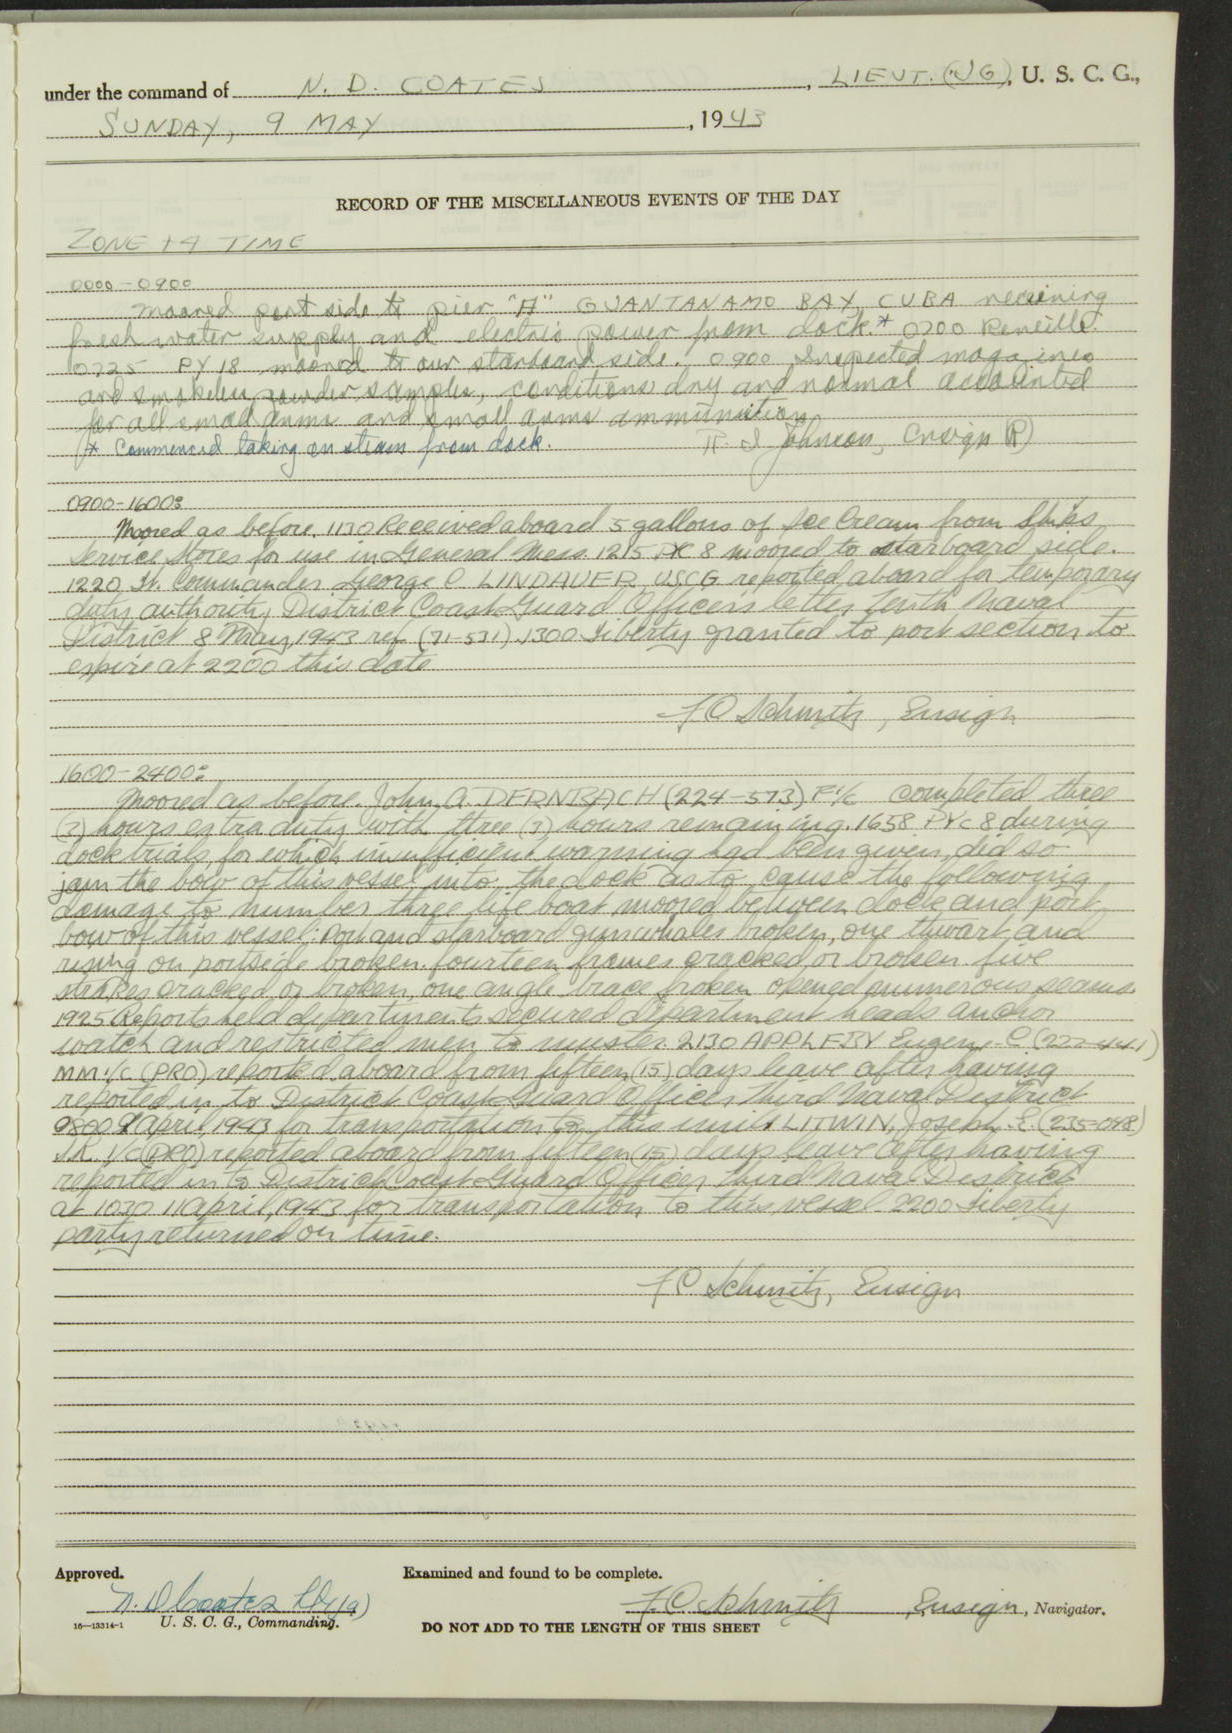 under the command of N. D. COATES, LIEUT. (JG), U. S. C. G.,
SUNDAY, 9 MAY, 1943
RECORD OF THE MISCELLANEOUS EVENTS OF THE DAY
ZONE +4 TIME
0000-0900
Moored port side to pier "A" GUANTANAMO BAY, CUBA receiving
fresh water supply and electric power from dock.* 0700 Reveille.
0725 PY 18 moored to our starboard side. 0900 Inspected magazines
and smokeless powder samples, conditions dry and normal accounted
for all small arms and small arms ammunition
* Commenced taking on steam from dock. Johnson, Ensign (R)
0900-1600:
Moored as before. 1130 Received aboard 5 gallons of Ice Cream from Ships
Service Stores for use in General Mess. 1215 8 moored to starboard side.
1220 Lt. Commander George C LINDAUER, USCG reported aboard for temporary
duty authority, District Coast Guard Officer's letter Tenth Naval
District 8 May, 1943 ref (71-531). 1300 Liberty granted to port section to
expire at 2200 this date
F C Schmitz, Ensign
1600-2400:
Moored as before. John A. DERNBACH (224-573) F1/c completed three
(3) hours extra duty with three (3) hours remaining. 1658 PYc 8 during
dock trials, for which insufficient warning had been given, did so
jam the bow of this vessel into the dock as to cause the following
damage to number three life boat moored between dock and port
bow of this vessel: Port and starboard gunwhales broken, one thwart and
rising on portside broken. fourteen frames cracked or broken. five
strakes cracked or broken, one angle brace broken opened numerous seams.
1925 Reports held departments secured department heads anchor
watch and restricted men to muster. 2130 APPLEBY Eugene C (222-441)
MM1/c (PRO) reported aboard from fifteen (15) days leave after having
reported in to District Coast Guard Officer, Third Naval District
0800 April, 1943 for transportation to this unit. LITWIN, Joseph E. (235-048)
S.K. 1/c (PRO) reported aboard from fifteen (15) days leave after having
reported in to District Coast Guard Officer, Third Naval District
at 1030 11 April, 1943 for transportation to this vessel. 2200 Liberty
party returned on time.
F C Schmitz, Ensign
Approved. Examined and found to be complete.
N. D Coates Lt(jg) F. C. Schmitz, Ensign, Navigator.
16—13314-1 U. S. C. G., Commanding. DO NOT ADD TO THE LENGTH OF THIS SHEET